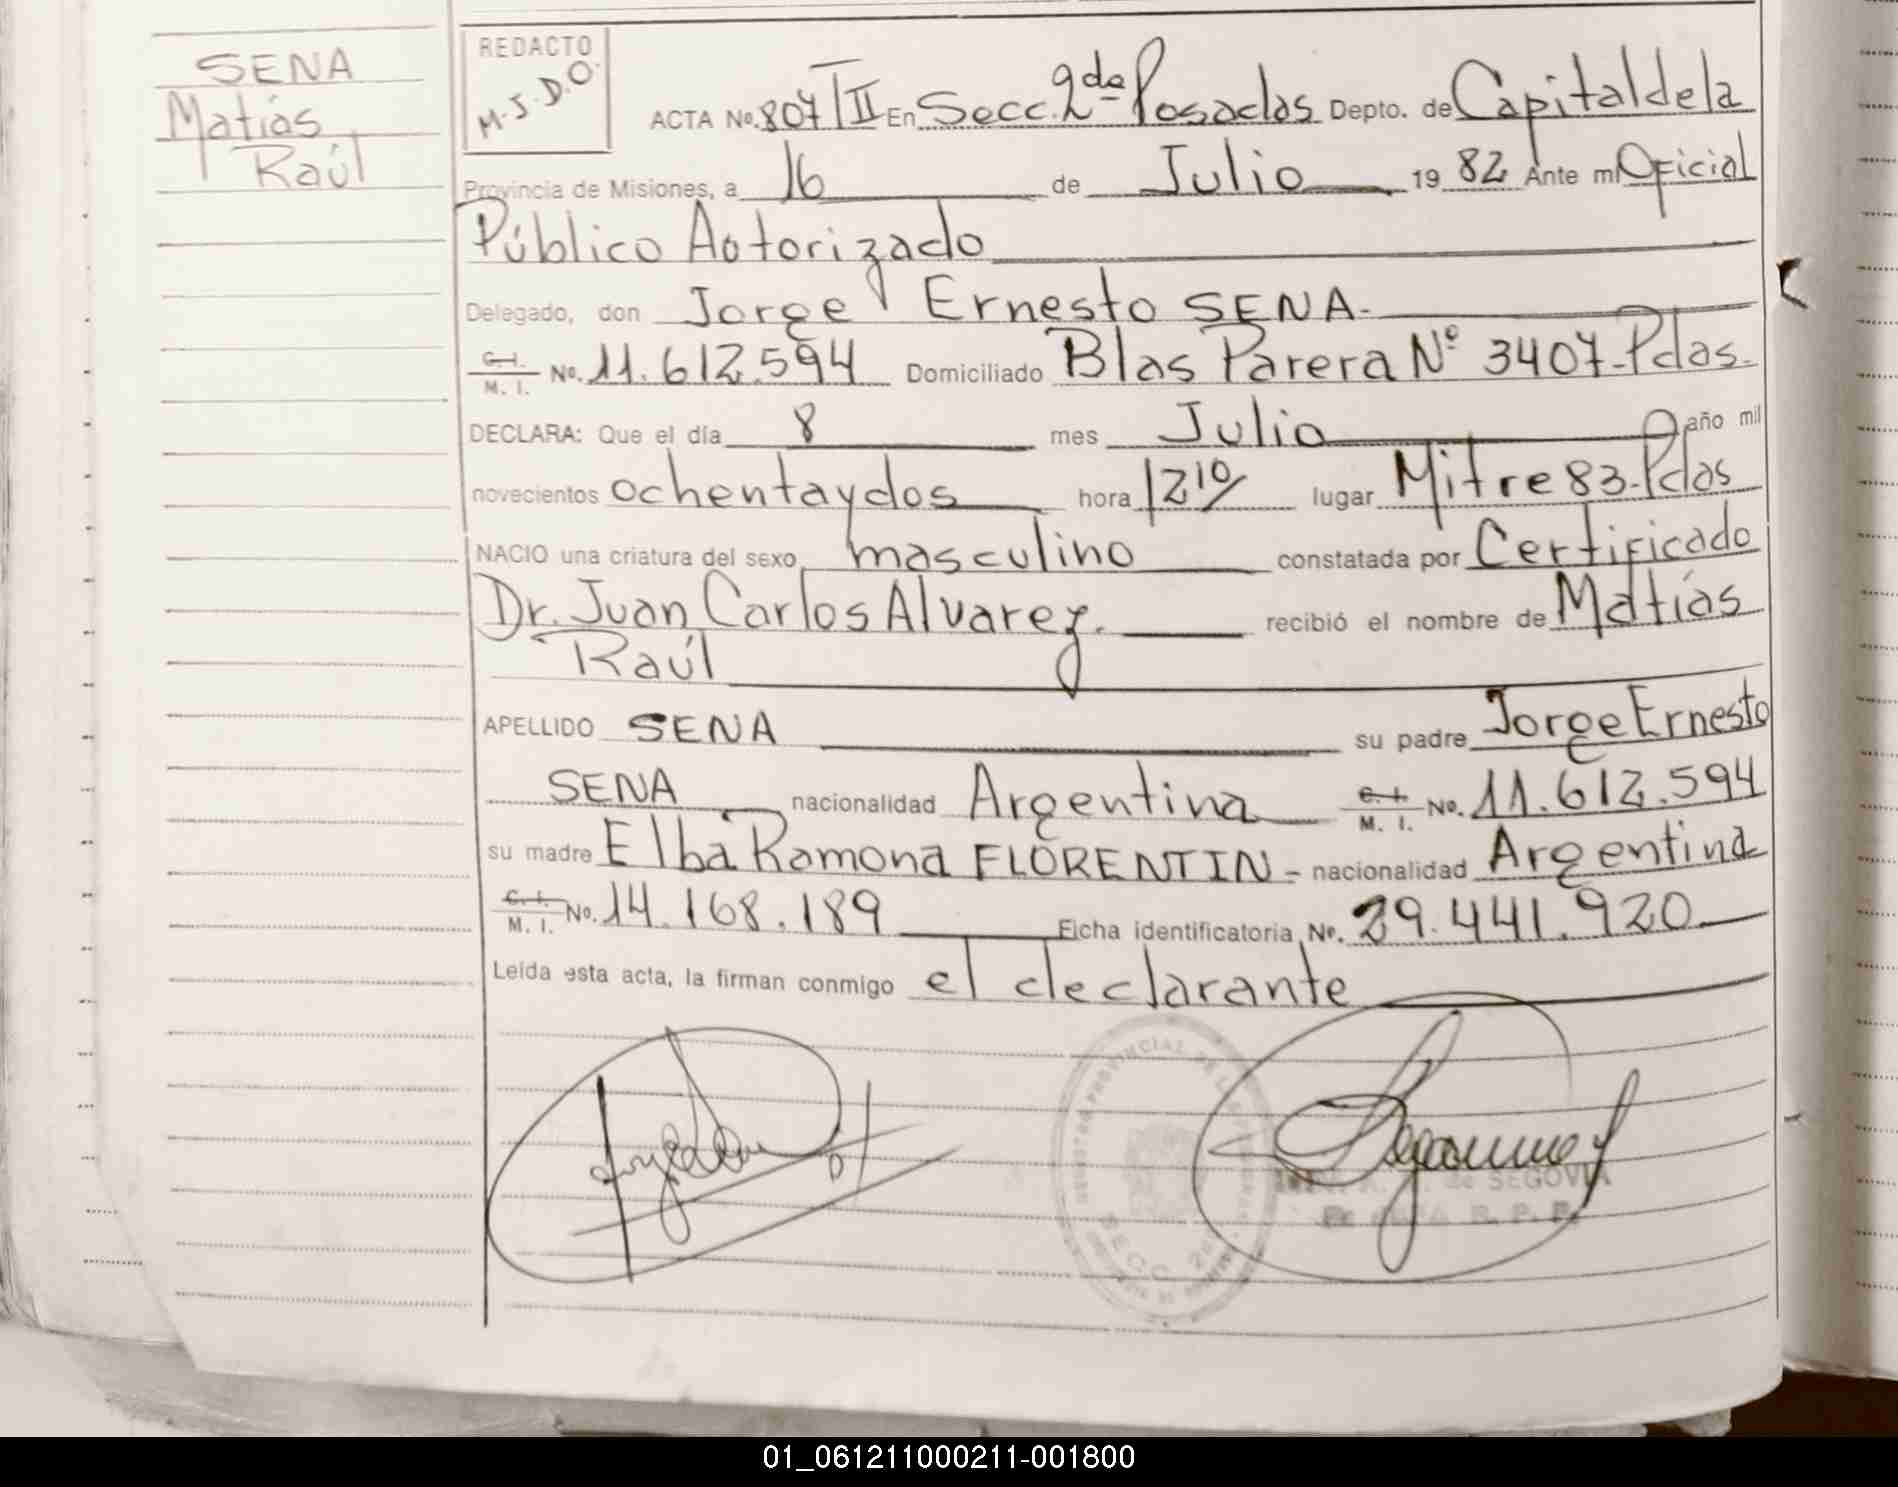 SENA
Matías
Raúl
REDACTO
M.S.D.O.
ACTA No. 807 TII En Secc. 2da Posadas Depto. de Capital de la
Provincia de Misiones, a 16 de Julio 19 82 Ante mí Oficial
Público Autorizado
Delegado, don Jorge Ernesto SENA.
C. I. / M. I. No. 11.612.594 Domiciliado Blas Parera Nº 3407-Pdas.
DECLARA: Que el día 8 mes Julio año mil
novecientos ochenta y dos hora 12 10/ lugar Mitre 83-Pdas
NACIO una criatura del sexo masculino constatada por Certificado
Dr. Juan Carlos Alvarez. recibió el nombre de Matías
Raúl
APELLIDO SENA su padre Jorge Ernesto
SENA nacionalidad Argentina C. I. / M. I. No. 11.612.594
su madre Elba Ramona FLORENTIN - nacionalidad Argentina
C. I. / M. I. No. 14.168.189 Ficha identificatoria, No. 29.441.920
Leída esta acta, la firman conmigo el declarante
REGISTRO PROVINCIAL DE LAS PERSONAS
SECC. 2da
de SEGOVIA
R. P. P.
01_061211000211-001800